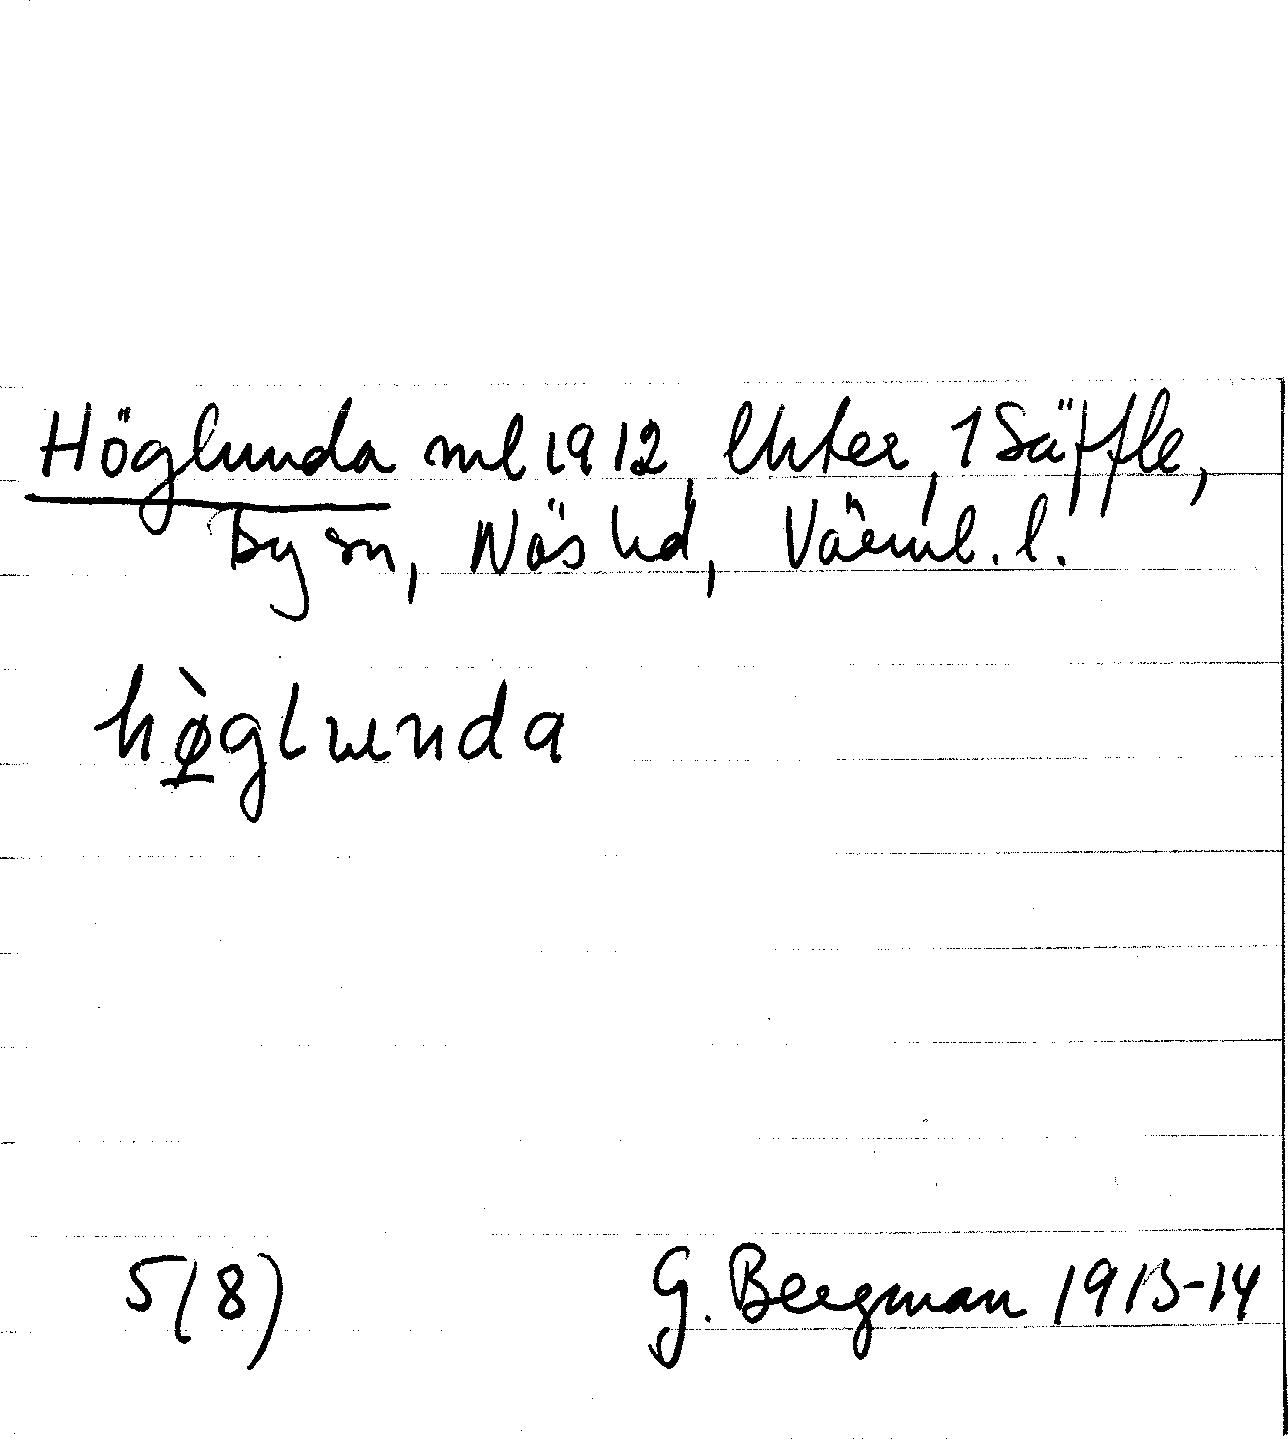 Höglunda ml 1912, lhter, 1 Säffle,
By sn, Näs hd, Värml. l.
hø̀glunda
5(8) G. Bergman 1913-14